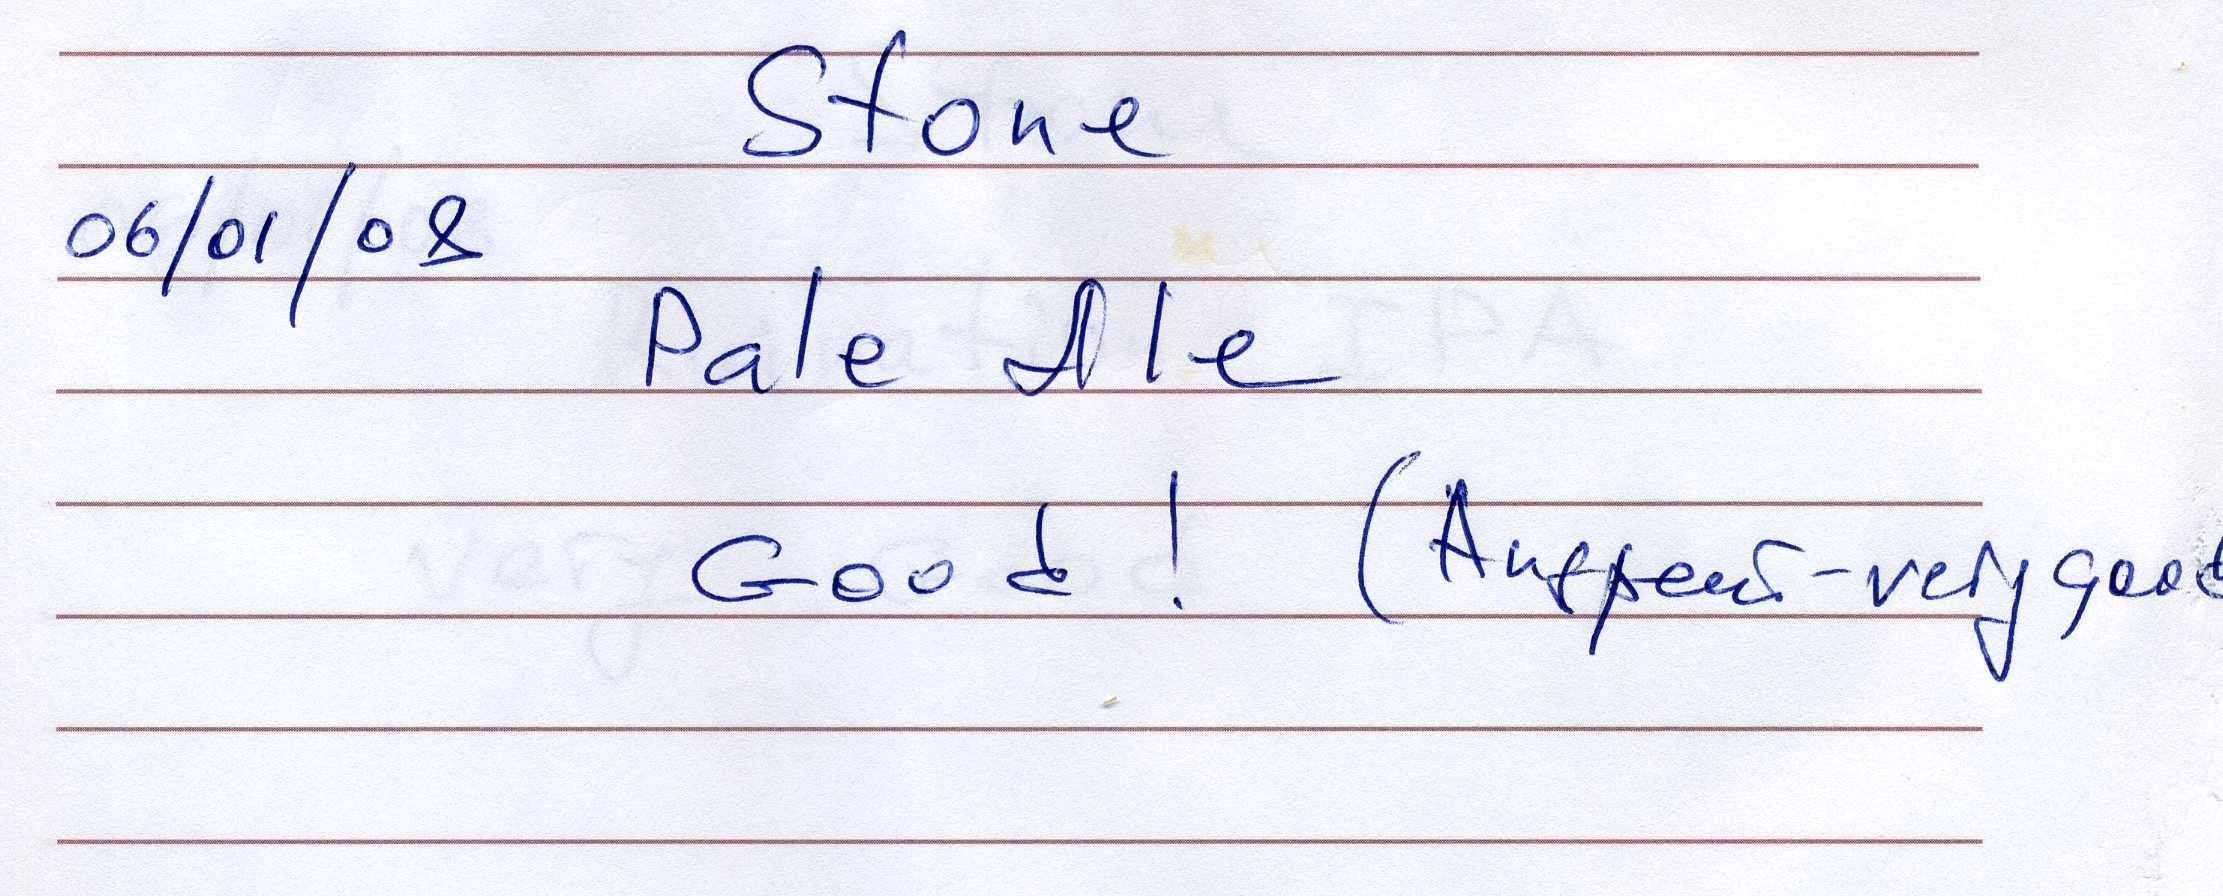 Stone
06/01/08
Pale Ale
Good! (Андрей-very good